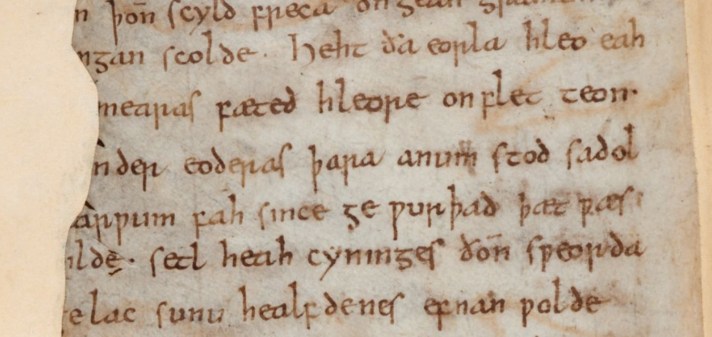 þon̄ scyld freca ongean
ngan scolde. Heht ða eorla hleo eah
mearas fæted hleore onflet teon.
nder eoderas þara anum stod sadol
arƿum fah since ge ƿurþad þæt ƿæs
ilde. setl heah cyninges ðon̄ sƿeorda
elac sunu healfdenes efnan ƿolde